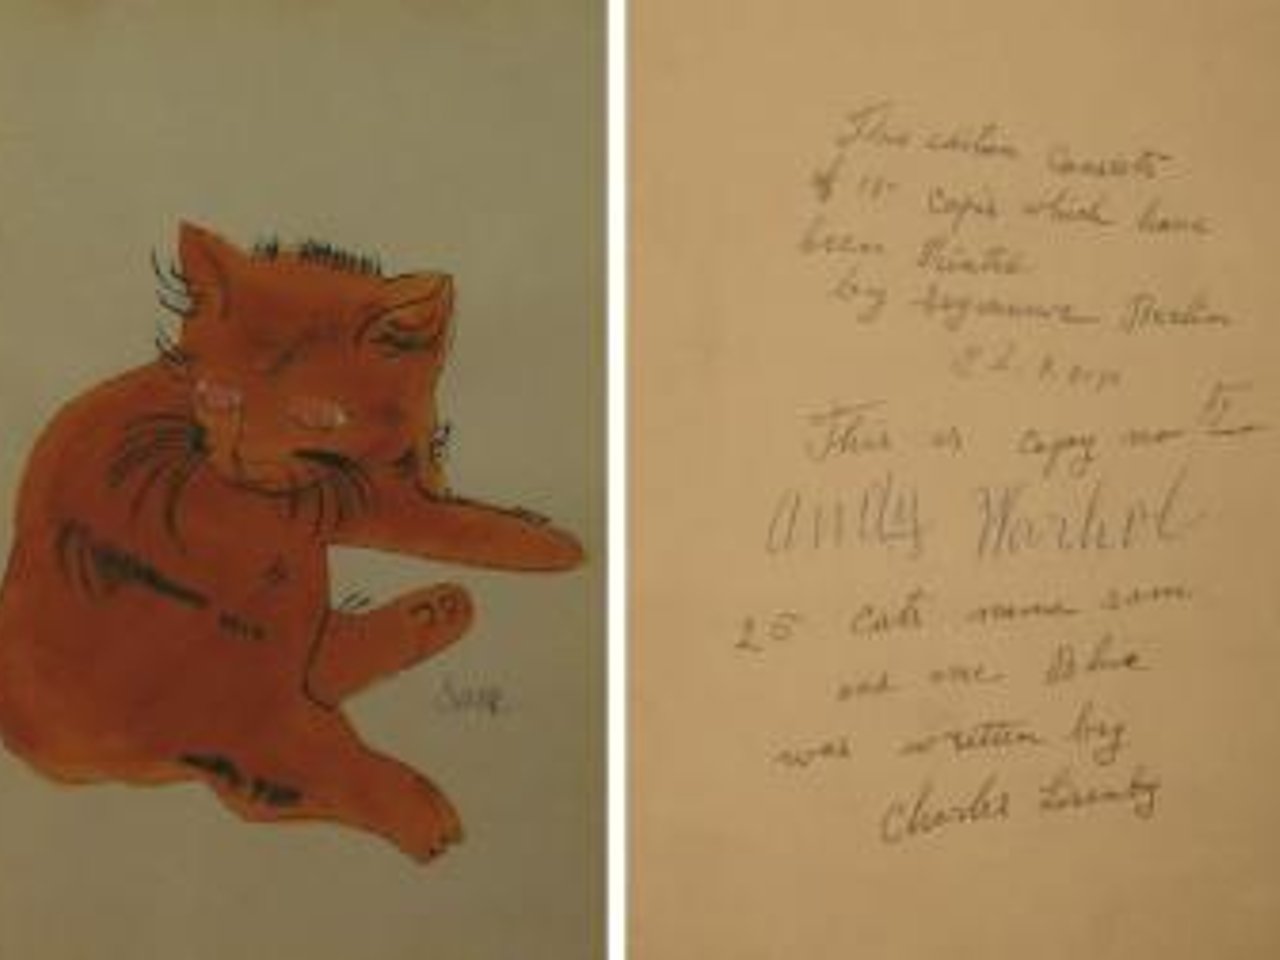 Sam
This edition consists
of 190 copies which have
been Printed
by Seymour Berlin
This is copy no
Andy Warhol
25 Cats name sam
and one Blue
was written by
Charles Lisanby